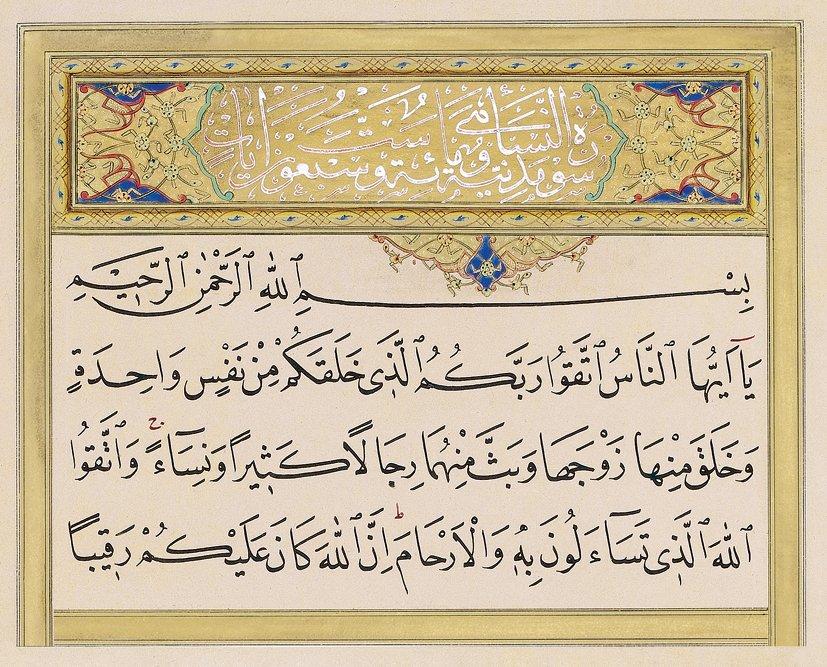 سورة النساء مدنية وهى مائة وست وسبعون ايات
بِسْمِ ٱللّٰهِ ٱلرَّحْمٰنِ ٱلرَّح۪يمِ
يَآ اَيُّهَا ٱلنَّاسُ ٱتَّقُوا رَبَّكُمُ ٱلَّذ۪ى خَلَقَكُمْ مِنْ نَفْسٍ وَاحِدَةٍ
وَخَلَقَ مِنْهَا زَوْجَهَا وَبَثَّ مِنْهُمَا رِجَالًا كَث۪يرًا وَنِسَآءً ۚ وَٱتَّقُوا
ٱللّٰهَ ٱلَّذ۪ى تَسَآءَلُونَ بِه۪ وَٱلْاَرْحَامَ ؕ اِنَّ ٱللّٰهَ كَانَ عَلَيْكُمْ رَق۪يبًا